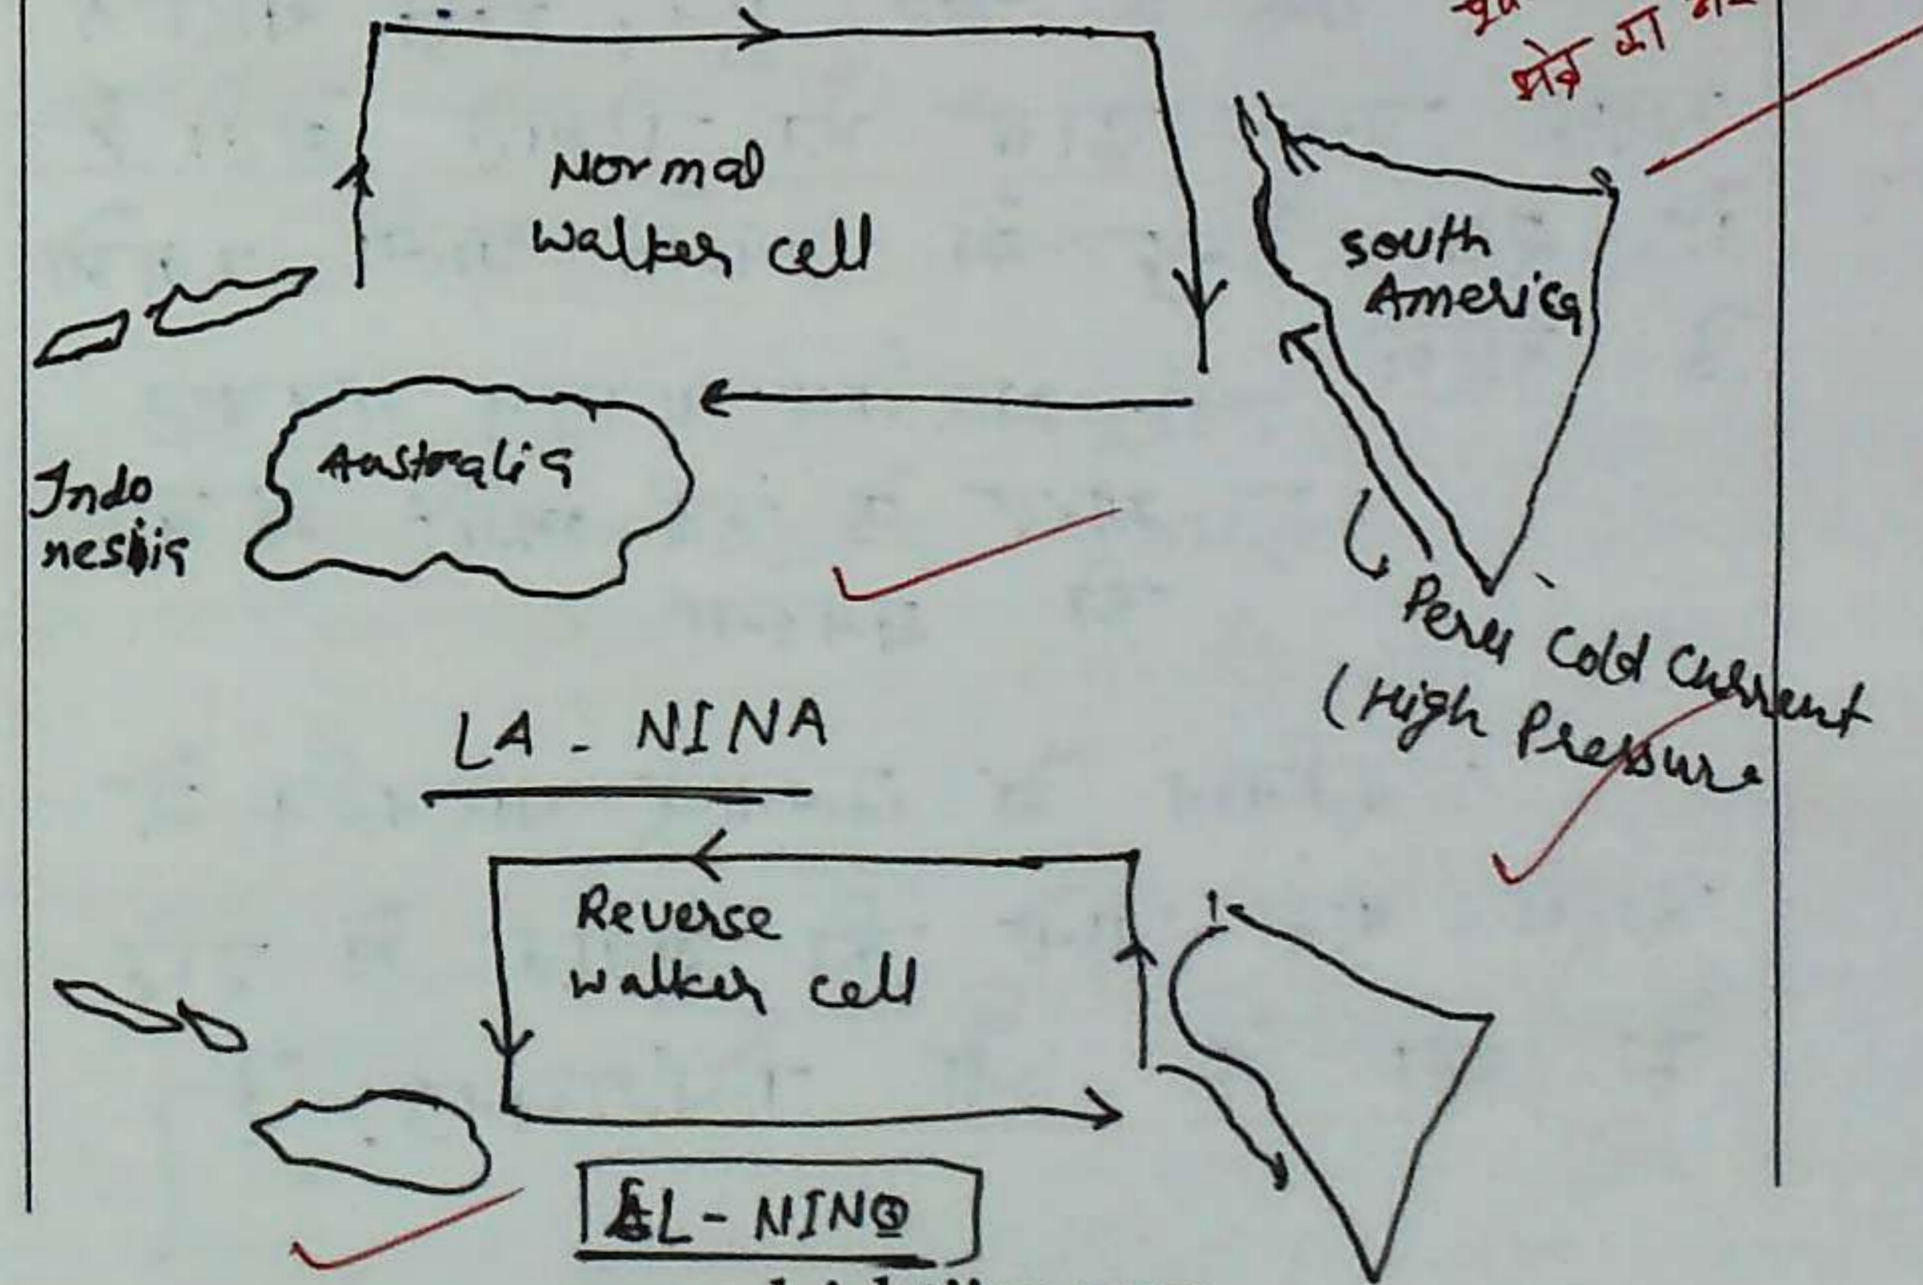 का
Normal
Walker cell
South
America
Australia
Indo
nesia
Peru Cold Current
(High Pressure
LA - NINA
Reverse
Walker cell
EL - NINO